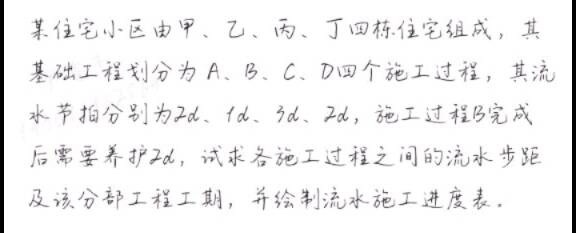 某住宅小区由甲、乙、丙、丁四栋住宅组成，其
基础工程划分为A、B、C、D四个施工过程，其流
水节拍分别为2d、1d、3d、2d，施工过程B完成
后需要养护2d，试求各施工过程之间的流水步距
及该分部工程工期，并绘制流水施工进度表。